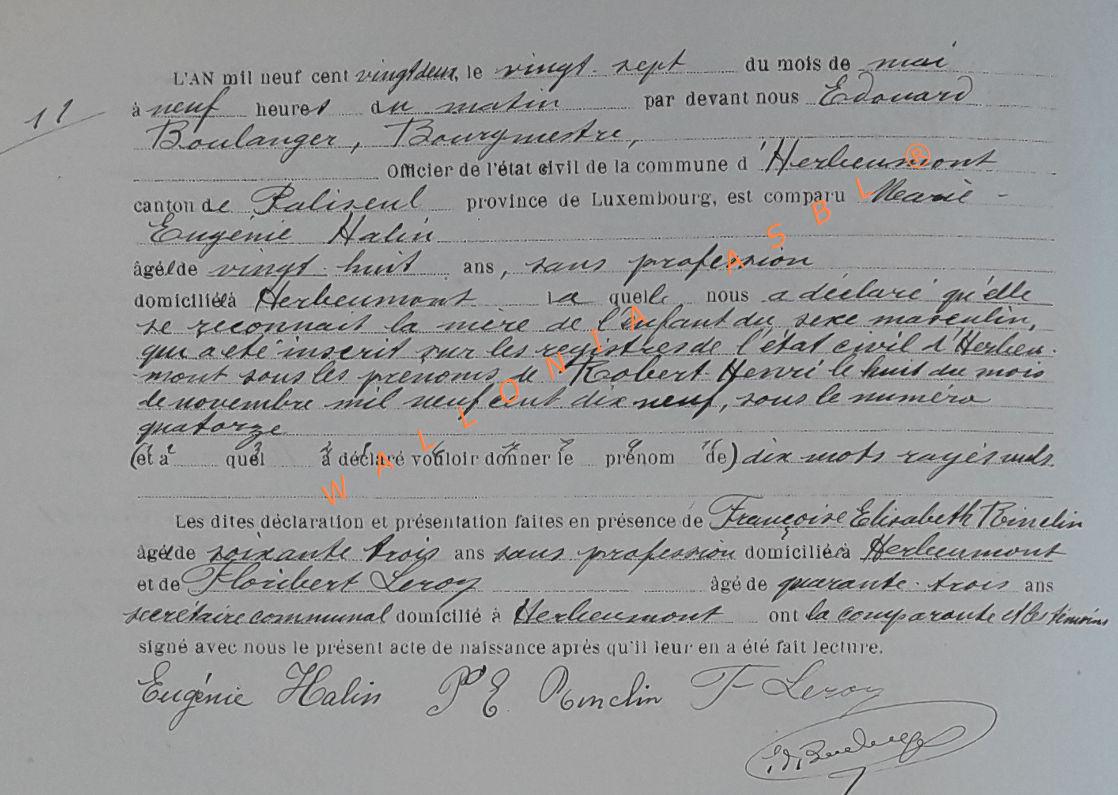 11
L'AN mil neuf cent vingtdeux, le vingt-sept du mois de mai
à neuf heures du matin par devant nous Edouard
Boulanger, Bourgmestre,
Officier de l'état civil de la commune d'Herbeumont
canton de Paliseul province de Luxembourg, est comparu Marie-
Eugénie Halin
âgée de vingt-huit ans, sans profession
domiciliée à Herbeumont laquelle nous a déclaré qu'elle
se reconnait la mère de l'enfant du sexe masculin,
qui a été inscrit sur les registres de l'état civil d'Herbeu-
mont sous les prénoms de Robert Henri le huit du mois
de novembre mil neuf cent dix neuf, sous le numéro
quatorze
(et a quel a déclaré vouloir donner le prénom de) dix mots rayés nuls.
Les dites déclaration et présentation faites en présence de Françoise Elisabeth Rinclin
âgée de soixante trois ans sans profession domiciliée à Herbeumont
et de Floribert Leroy âgé de quarante-trois ans
secrétaire communal domicilié à Herbeumont ont la comparante et les témoins
signé avec nous le présent acte de naissance après qu'il leur en a été fait lecture.
Eugénie Halin E. Rinclin F Leroy
Ed. Boulanger
WALLONIA ASBL ®